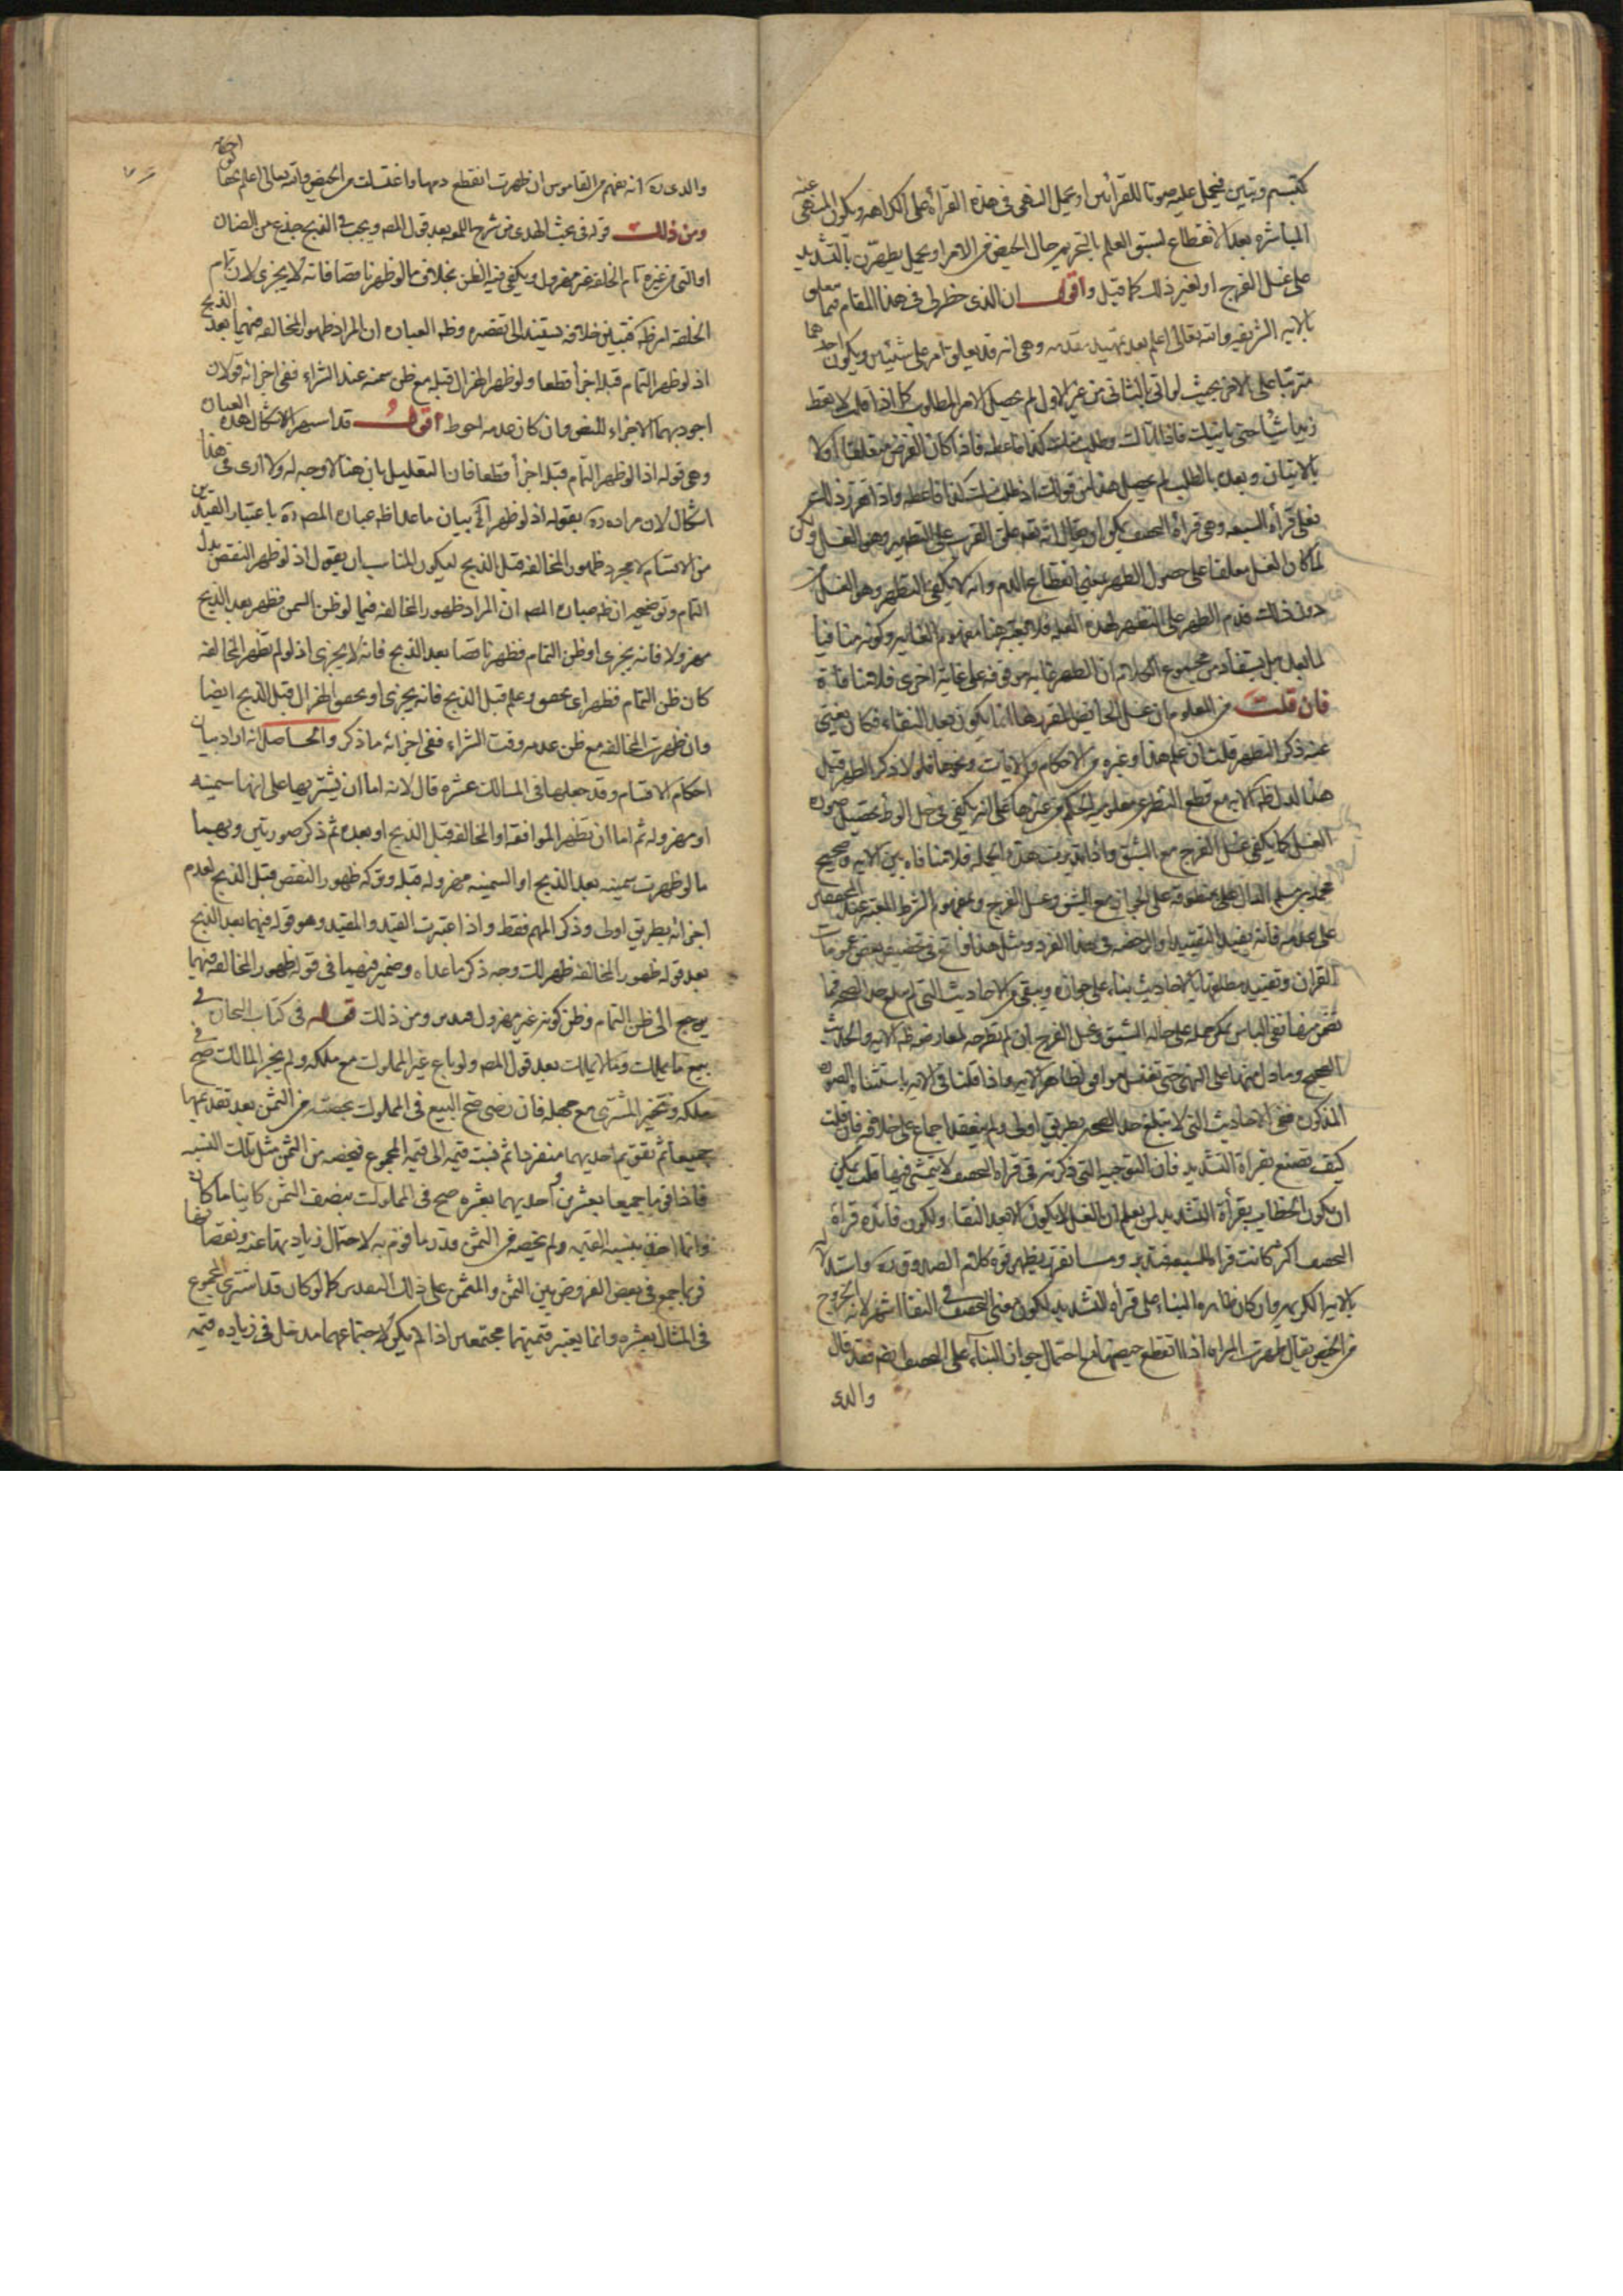 كتبسم وتبين فيحمل عليه صونا للقرائتين او يحمل النهى فى هذه القرأة على الكراهه ويكون المنهى عنه
المباشره بعد الانقطاع لسبق العلم بالتحريم حال الحيض من الامر او يحمل يطهرن بالتشديد
على غسل الفرج او لغير ذلك كما قيل واقول ان الذى خطر لى فى هذا المقام فيما يتعلق
بالايه الشريفه والله تعالى اعلم بعد تمهيد مقدمه وهى انه قد يعلق امر على شيئين ويكون احدهما
مترتبا على الاخر بحيث لو اتى بالثانى من غير الاول لم يحصل الامر المطلوب كما اذا قلت لا تعط
زيدا شيئا حتى ياتيك فاذا اتاك وطلب منك كذا فاعطه فاذا كان الغرض متعلقا اولا
بالاتيان وبعده بالطلب لم يحصل هذا من قولك اذا طلب منك كذا فاعطه واذا تقرر ذلك
فعلى قرأه السبعه وهى قرأة التخفيف يمكن ان يقال انه نبه على القرب على التطهير وهو الغسل ولكن
لما كان الغسل معلقا على حصول الطهر بمعنى انقطاع الدم وانه لا يكفى التطهر وهو الغسل من
دون ذلك قدم الطهر على التطهر لهذه العله فلا يعتبر هنا مفهوم الغايه وكونه منافيا
لما بعد بل يستفاد من مجموع الكلام ان الطهر غايه موقوفه على غاية اخرى فلا منافاة
فان قلت من المعلوم ان غسل الحايض المقرر لها انما يكون بعد النقاء فكان يغنى
عنه ذكر التطهر قلت ان علم هذا وغيره من الاحكام والايات ونحوها فلولا ذكر الطهر قبل
هذا لدل ظاهر الايه مع قطع النظر عن معلوميه الحكم من غيرها على انه يكفى فى حل الوطء تحصيل صوره
الغسل كما يكفى غسل الفرج مع الشبق واذا تدبرت هذه الجمله فلا منافاه بين الايه وصحيح
محمد بن مسلم الدال على منطوقه على الجواز مع الشبق وغسل الفرج ومفهوم الشرط المعتبر عند المحققين
على عدمه فانه يفيد التقييد والرخصه فى هذا الفرد ومثل هذا واقع فى تخصيص بعض عمومات
القران وتقييد مطلقها بالاحاديث بناء على جوازه ويبقى من الاحاديث التى لم تبلغ حد الصحه فما
تضمن منها نفى الباس يمكن حمله على حاله الشبق وغسل الفرج ان لم نطرحه لمعارضه ظاهر الايه والحديث
الصحيح وما دل منها على النهى حتى تغتسل موافق لظاهر الايه واذا قلنا فى الايه باستثناء الصوره
المذكوره ففى الاحاديث التى لا تبلغ حد الصحه بطريق اولى ولم ينعقد اجماع على خلافه فان قلت
كيف تصنع بقراة التشديد فان التوجيه التى ذكرته فى قراة التخفيف لا يتمشى فيها قلت يمكن
ان يكون الخطاب بقرأة التشديد لمن يعلم ان الغسل لا يكون الا بعد النقاء ولكون فائده قراة
التخفيف اكثر كانت قراة السبعه فتدبر ومما تقرر يظهر قوة كلام الصدوق ره واستدلاله
بالايه الكريمه وان كان ظاهره البناء على قرأة التشديد لكون معنى التخفيف فى النقا اشهر لانه الخروج
من الحيض يقال طهرت المراه اذا انقطع حيضها مع احتمال جواز البناء على التخفيف ايضا فقد قال
والدى
والدى ره انه يفهم من القاموس ان طهرت انقطع دمها واغتسلت من الحيض والله تعالى اعلم بحقايق احكامه
ومن ذلك قوله فى بحث الهدى من شرح اللمعه بعد قول المصـ ويجب فى الذبح جذع من الضان
او الثنى من غيره تام الخلقه غير مهزول ويكفى فيه الظن بخلاف ما لو ظهر ناقصا فانه لا يجزى لان تمام
الخلقه امر ظاهر فتبين خلافه مستند الى تقصيره وظاهر العباره ان المراد ظهور المخالفه فيهما بعد الذبح
اذ لو ظهر التمام قبله اجزأ قطعا ولو ظهر الهزال قبله مع ظن سمنه عند الشراء ففى اجزائه قولان
اجودهما الاجزاء للنص وان كان عدمه احوط اقول قد استصعب الاشكال هذه العباره
وهى قوله اذ لو ظهر التمام قبله اجزأ قطعا فان التعليل بان هنا لا وجه له ولا ارى فى هذا
اشكال لان مراده ره بقوله اذ لو ظهر الخ بيان ما عدا ظاهر عباره المصـ ره باعتبار القيدين
من الاقسام لا مجرد ظهور المخالفه قبل الذبح ليكون المناسب ان يقول اذ لو ظهر النقص بدل
التمام وتوضيحه ان ظاهر عباره المصـ ان المراد ظهور المخالفه فيما لو ظن السمن فظهر بعد الذبح
مهزولا فانه يجزى او ظن التمام فظهر ناقصا بعد الذبح فانه لا يجزى اذ لو لم تظهر المخالفه
كان ظن التمام فظهر اى تحقق وعلم قبل الذبح فانه يجزى او تحقق الهزال قبل الذبح ايضا
وان ظهرت المخالفه مع ظن عدمه وقت الشراء ففى اجزائه ما ذكر والحاصل انه اراد بيان
احكام الاقسام وقد جعلها فى المسالك عشره قال لانه اما ان يشتريها على انها سمينه
او مهزوله ثم اما ان تظهر الموافقه او المخالفه قبل الذبح او بعده ثم ذكر صورتين وهما
ما لو ظهرت سمينه بعد الذبح او السمينه مهزوله قبله وترك ظهور النقص قبل الذبح لعدم
اجزائه بطريق اولى وذكر المهم فقط واذا اعتبرت القيد والمقيد وهو قوله فيهما بعد الذبح
بعد قوله ظهور المخالفه ظهر لك وجه ذكر ما عداه وضمير فيهما فى قوله ظهور المخالفه فيهما
يرجع الى ظن التمام وظن كونه غير مهزول ومن ذلك قوله فى كتاب التجاره فى
بيع ما يملك وما لا يملك بعد قول المصـ ولو باع غير المملوك مع ملكه ولم يجز المالك صح فى
ملكه وتخير المشترى مع جهله فان رضى صح البيع فى المملوك بحصته من الثمن بعد تقويمهما
جميعا ثم تقويم احدهما منفردا ثم نسبت قيمته الى قيمة المجموع فيخصه من الثمن مثل تلك النسبه
فاذا قوما جميعا بعشرين واحدهما بعشره صح فى المملوك بنصف الثمن كاينا ما كان
وانما اخذ بنسبه القيمه ولم يخصه من الثمن قدر ما قوم به لاحتمال زيادتها عنه ونقصانها
فربما جمع فى بعض الفروض بين الثمن والمثمن على ذلك التقدير كما لو كان قد اشترى المجموع
فى المثال بعشره وانما يعتبر قيمتهما مجتمعين اذا لم يكن لاجتماعهما مدخل فى زياده قيمه